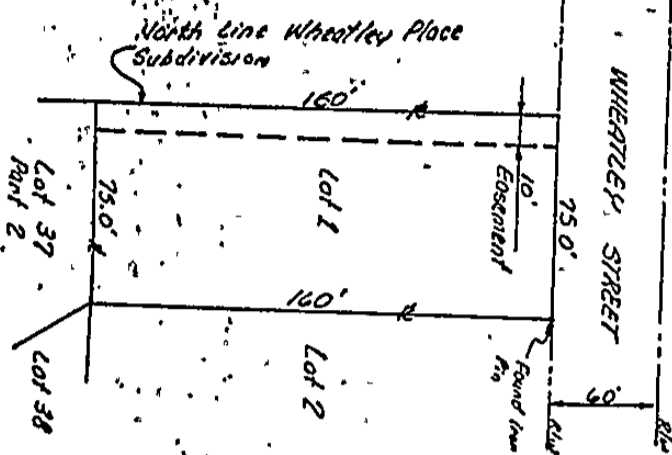 North Line Wheatley Place
Subdivision
160'
WHEATLEY STREET
10'
Easement
75.0'
Lot 1
75.0'
Lot 37
Part 2
160'
Lot 2
Found Iron
Pin
60'
R/W
R/W
Lot 38